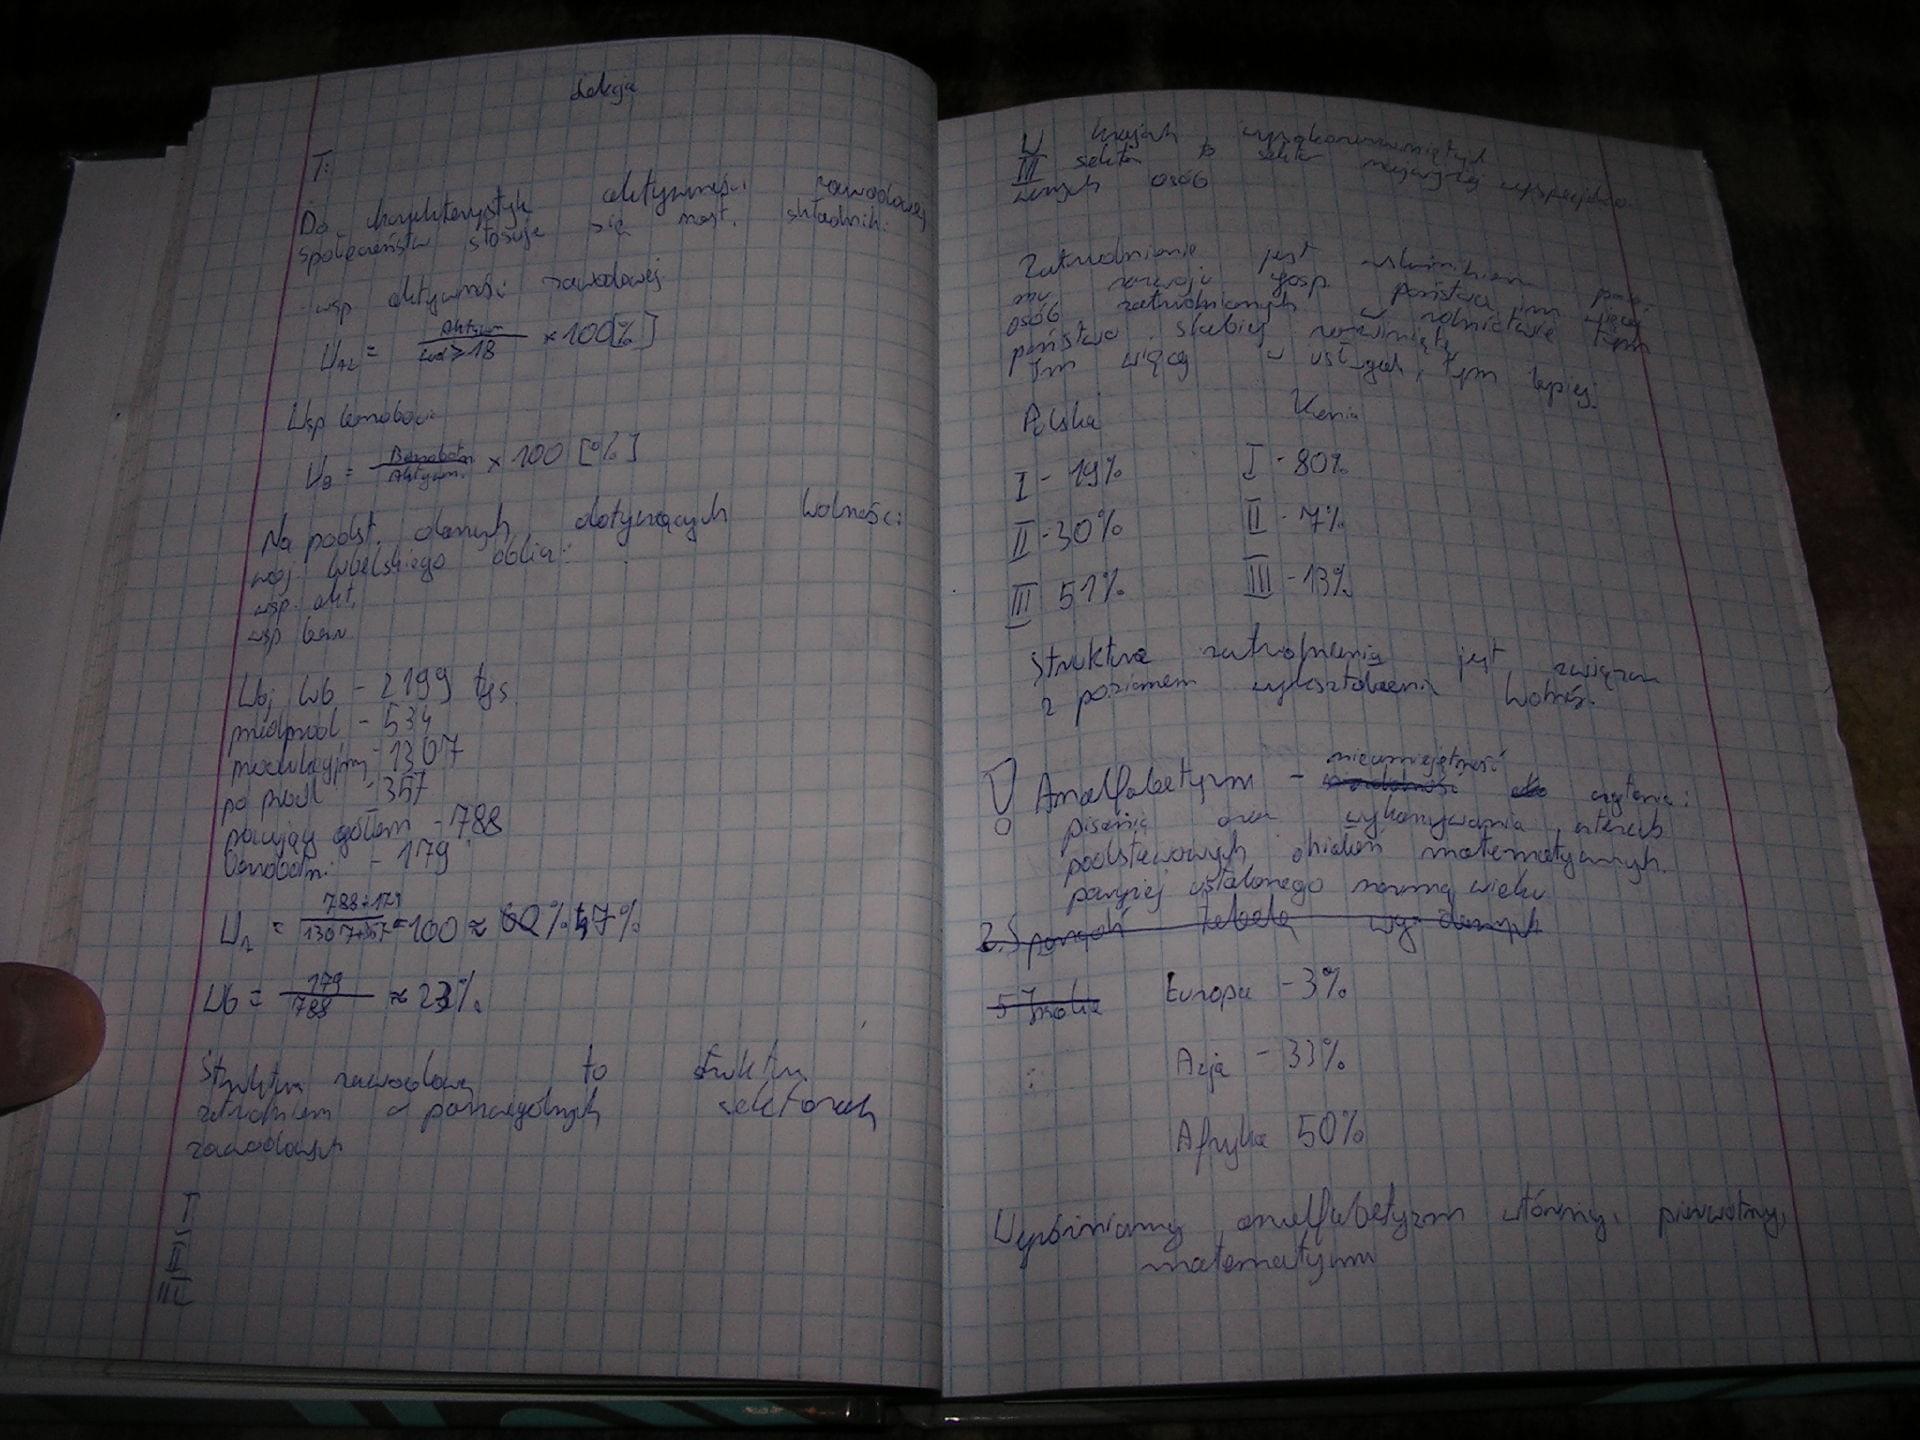 Lekcja
T:
Do charakterystyk aktywności zawodowej
społeczeństw stosuje się nast. składnik:
- wsp aktywności zawodowej
= Aktywn / ≥ 18 × 100[%]
Wsp bezrobocia
WB = Bezrobotni / Aktywn. × 100 [%]
Na podst. danych dotyczących ludności:
woj lubelskiego oblicz:
wsp. akt.
wsp bezr
Woj lub - 2199 tys
przedprod - 534
produkcyjny - 1307
po prod - 357
pracujący ogółem - 788
bezrobotni - 179
= 788+179 / 1307+357 100 ≈ 47%
Wb = 179 / 788 ≈ 23%
Struktura zawodowa to struktura
zatrudnien w poszczególnych sektorach
zawodowych
I
II
III
W krajach wysokorozwiniętych
III sektor to sektor najwyżej wyspecjalizo-
wanych osób
Zatrudnienie jest wskaźnikiem pozio-
mu rozwoju gosp. państwa im więcej
osób zatrudnionych w rolnictwie tym
państwo słabiej rozwinięte,
Im więcej w usługach, tym lepiej.
Polska Kenia
I - 19% I - 80%
II - 30% II - 7%
III 51% III - 13%
Struktura zatrudnienia jest związana
z poziomem wykształcenia ludnoś.
nieumiejętność
! Analfabetyzm - czytania i
pisania oraz wykonywania czterech
podstawowych działań matematycznych.
powyżej ustalonego normą wieku
2. Sporządź tabelę wg danych
Europa - 3%
Azja - 33%
Afryka 50%
Wyróżniamy analfabetyzm wtórny, pierwotny,
matematyczny